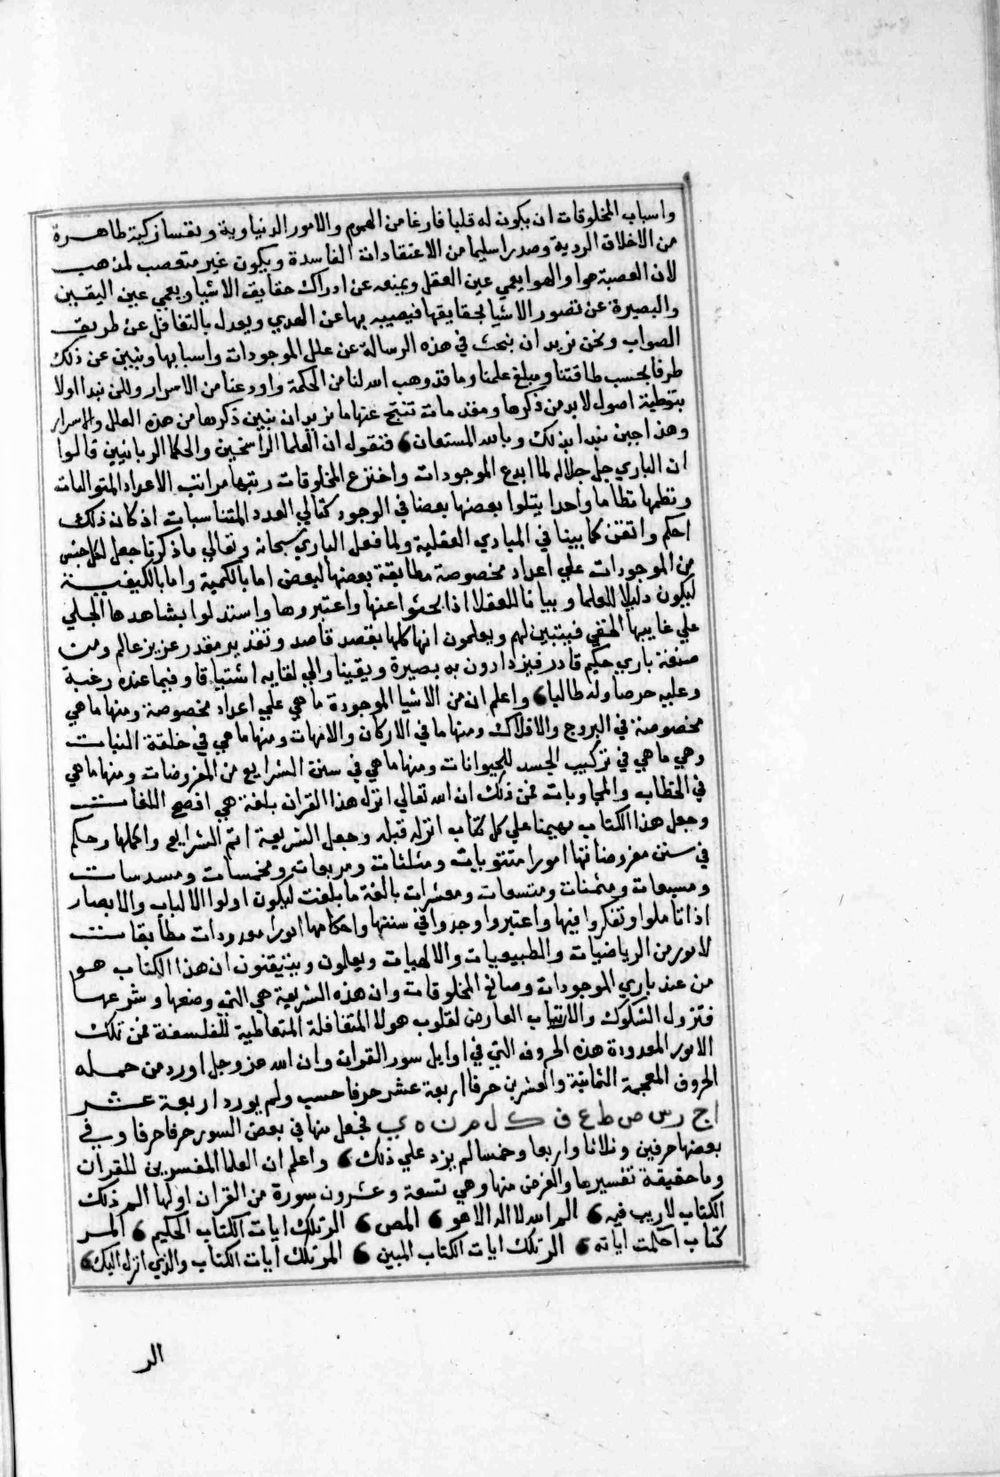 واسباب المخلوقات ان يكون له قلبا فارغا من الهموم والامور الدنياوية ونفسا زكية طاهرة
من الاخلاق الردية وصدرا سليما من الاعتقادات الفاسدة ويكون غير متعصب لمذهب
لان العصبة هوا والهوا يعمي عين العقل ويمنعه عن ادراك حقايق الاشيا ويعمي عين اليقين
والبصيرة عن تصور الاشيا بحقايقها فيصيبه بها عن الهدي ويعدل بالتغافل عن طريق
الصواب ونحن نريد ان نبحث في هذه الرسالة عن علل الموجودات واسبابها ونبين عن ذلك
طرفا بحسب طاقتنا ومبلغ علمنا وما قد وهب الله لنا من الحكمة واودعنا من الاسرار ولكن نبدا اولا
بتوطية اصول لابد من ذكرها ومقدمات تنتج عنها ما نريد ان نبين ذكرها من هذه العلل والاسرار
وهذا حين نبدا بذلك وبالله المستعان فنقول ان العلما الراسخين والحكما الربانيين قالوا
ان الباري جل جلاله لما ابدع الموجودات واخترع المخلوقات رتبها مراتب الاعداد المتواليات
ونظمها نظاما واحدا يتلوا بعضها بعضا في الوجود كتالي العدد المتناسبات اذ كان ذلك
احكم واتقن كما بينا في المبادي العقلية ولما فعل الباري سبحانه وتعالي ما ذكرنا جعل لكل جنس
من الموجودات علي اعداد مخصوصة مطابقة بعضها لبعض اما بالكمية واما بالكيفية
ليكون دليلا للعلما وبيانا للعقلا اذا بحثوا عنها واعتبروها واستدلوا بشاهدها الجلي
علي غايبها الخفي فيتبين لهم ويعلمون انها كلها بقصد قاصد وتقدير مقدر عزيز عالم ومن
صنعة باري حكيم قادر فيزدادون به بصيرة ويقينا والي لقايه اشتياقا وفيما عنده رغبة
وعليه حرصا وله طالبا واعلم ان من الاشيا الموجودة ما هي علي اعداد مخصوصة ومنها ما هي
مخصوصة في البروج والافلاك ومنها ما في الاركان والامهات ومنها ما هي في خلقة النبات
وهي ما هي في تركيب الجسد للحيوانات ومنها ما هي في سنن الشرايع من المفروضات ومنها ما هي
في الخطاب والمجاوبات فمن ذلك ان الله تعالي انزل هذا القران بلغة هي افصح اللغات
وجعل هذا الكتاب مهيمنا علي كل كتاب انزله قبله وجعل الشريعة اتم الشرايع واكملها وحكم
في سنن مفروضاتها امورا مثنويات ومثلثات ومربعات ومخمسات ومسدسات
ومسبعات ومثمنات ومتسعات ومعشرات بالغة ما بلغت ليكون اولوا الالباب والابصار
اذا تاملوا وتفكروا فيها واعتبروا وجدوا في سننها واحكامها امورا معدودات مطابقات
لامور من الرياضيات والطبيعيات والالهيات ويعلمون ويتيقنون ان هذا الكتاب هو
من عند باري الموجودات وصانع المخلوقات وان هذه الشريعة هي التي وضعها وشرعها
فتزول الشكوك والارتياب العارض لقلوب هولا المتغافلة المتعاطية للفلسفة فمن تلك
الامور المعدودة هذه الحروف التي في اوايل سور القران وان الله عز وجل اورد من جمله
الحروف المعجمة الثمانية والعشرين حرفا اربعة عشر حرفا حسب ولم يورد اربعة عشر
ا ح ر س ص ط ع ق ك ل م ن ه ي فجعل منها في بعض السور حرفا حرفا وفي
بعضها حرفين وثلاثا واربعا وخمسا لم يزد علي ذلك واعلم ان العلما المفسرين للقران
وما حقيقة تفسيرها والغرض منها وهي تسعة وعشرون سورة من القران اولها الم ذلك
الكتاب لا ريب فيه الم الله لا اله الا هو المص الر تلك ايات الكتاب الحكيم الر
كتاب احكمت اياته الر تلك ايات الكتاب المبين المر تلك ايات الكتاب والذي انزل اليك
الر